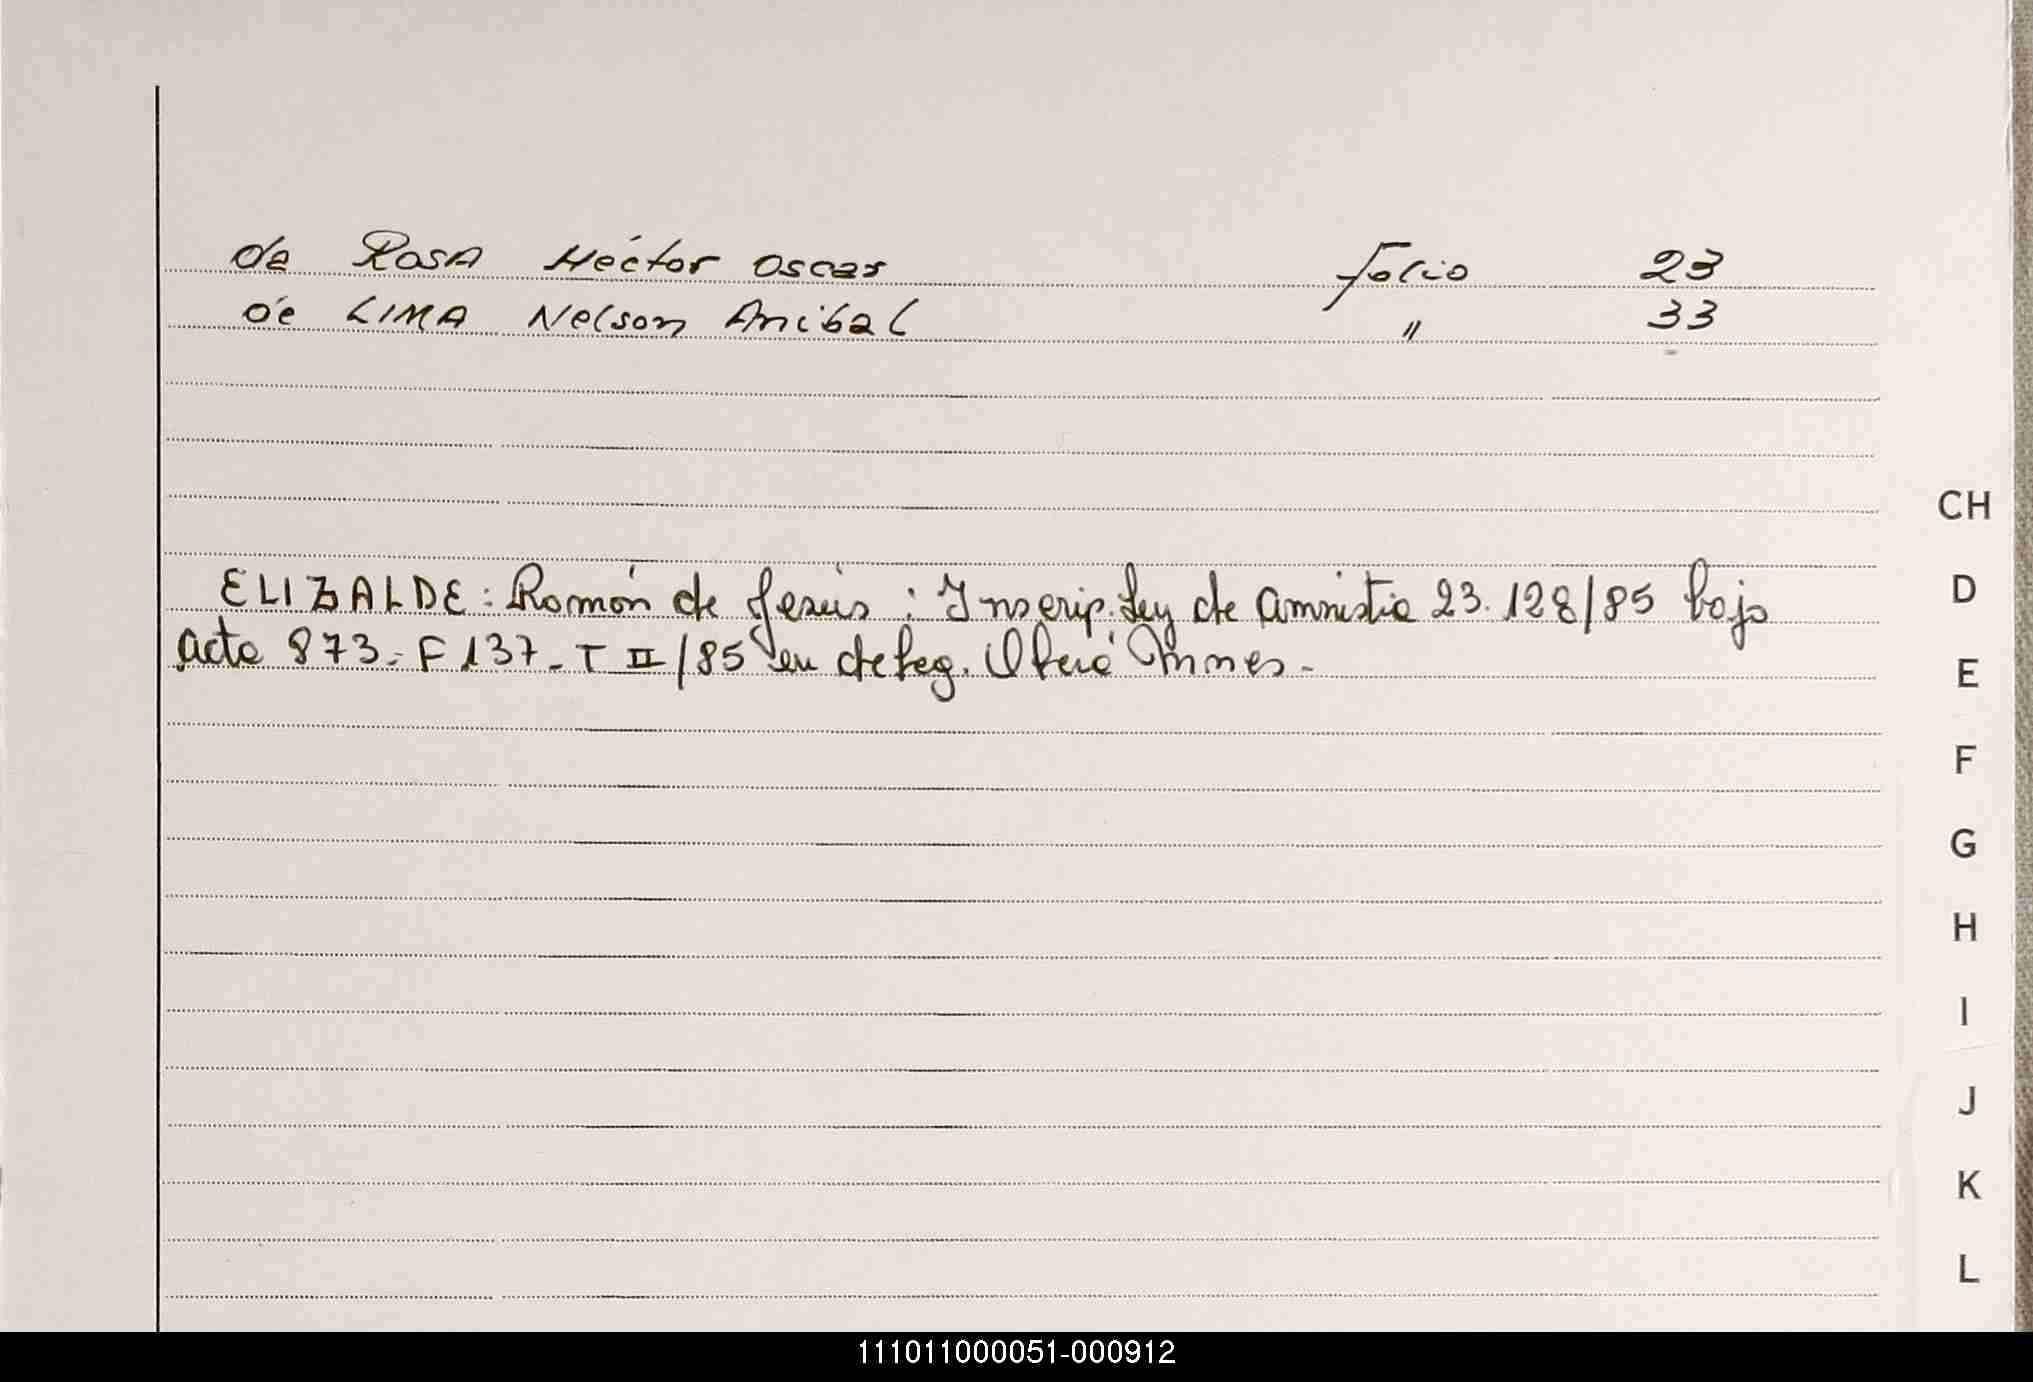 da ROSA Héctor Oscar folio 23
de LIMA Nelson Anibal " 33
ELIZALDE: Ramón de Jesús: Inscrip. Ley de amnistia 23.128/85 bajo
acta 873-F 137-T II/85 en deleg. Oberá Mnes.-
CH
D
E
F
G
H
I
J
K
L
111011000051-000912